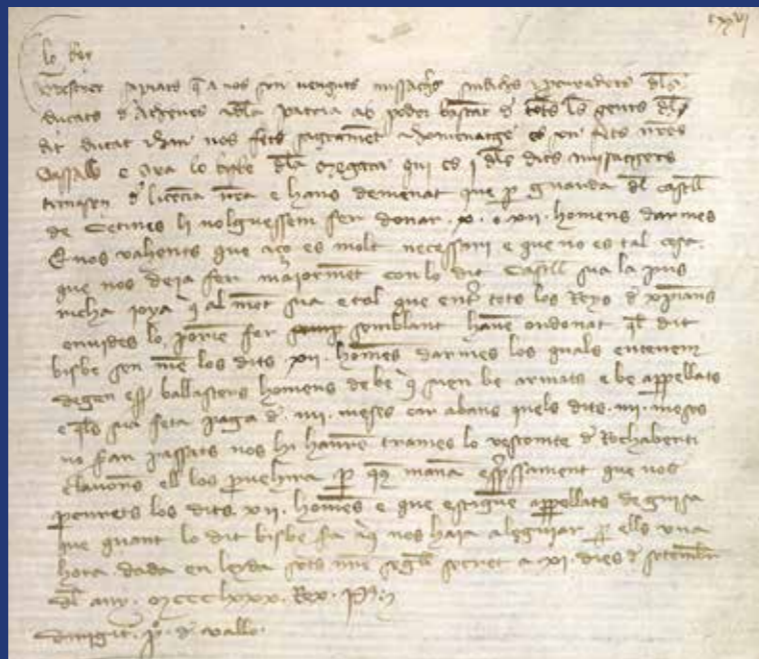 cxxvi
lo Rey
Tresorer sapiats q̄ a nos son venguts missatg̃s sindichs e procuradors dl̄s
ducats d Athenes e dl̄a patria ab poder bastant d totes les gents dl̄
dit ducat e han nos fets sagrament e homenatge e son fets nr̄es
vassalls e Ara lo bisbe dl̄a Megara qui es i dl̄s dits missatgers
tornasen d licencia nr̄a e hans demenat que p guarda dl̄ castell
de Cetines li volguessem fer donar .x. o xii. homens darmes
E nos vahents que aço es molt necessari e que no es tal cosa
que nos deja fer maiorment con lo dit Castell sia la pus
richa joya q̄ al mōt sia e tal que entr̄ tots los Reys d xp̄ians
envides lo porien fer semblant havē ordonat ql̄ dit
bisbe sen mē los dits xii. homēs darmes los quals entenem
degen esser ballesters homens de be q̄ sien be armats e be appellats
e ql̄s sia feta paga d. iiii. meses car abans quels dits .iiii. meses
no sian passats nos hi haurē trames lo vescomte d Rochaberti
e lavors ell los provehira p q̄us manā exp̄ssament que nos
procurets los dits .xii. homēs e que estiguē appellats de guisa
que quant lo dit bisbe sia aq̄ nos haja a leguiar p ells una
hora dada en leyda sots nr̄e segell secret a xi. dies d setembr̄
dl̄ any .mccclxxx. Rex .P.
Dirigit. P. d vallo.